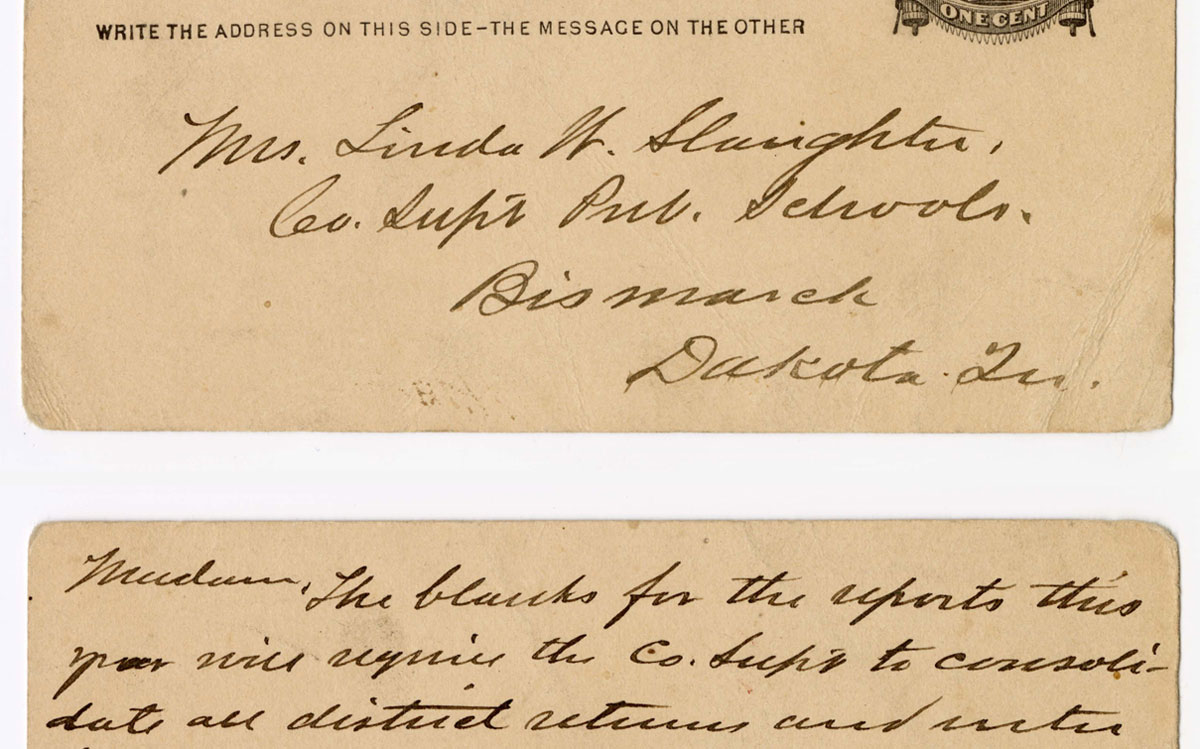 ONE CENT
WRITE THE ADDRESS ON THIS SIDE-THE MESSAGE ON THE OTHER
Mrs. Linda W. Slaughter,
Co. Supt Pub. Schools.
Bismarck
Dakota Ter.
Madam, The blanks for the reports this
year will require the Co. Supt to consoli-
date all district returns and